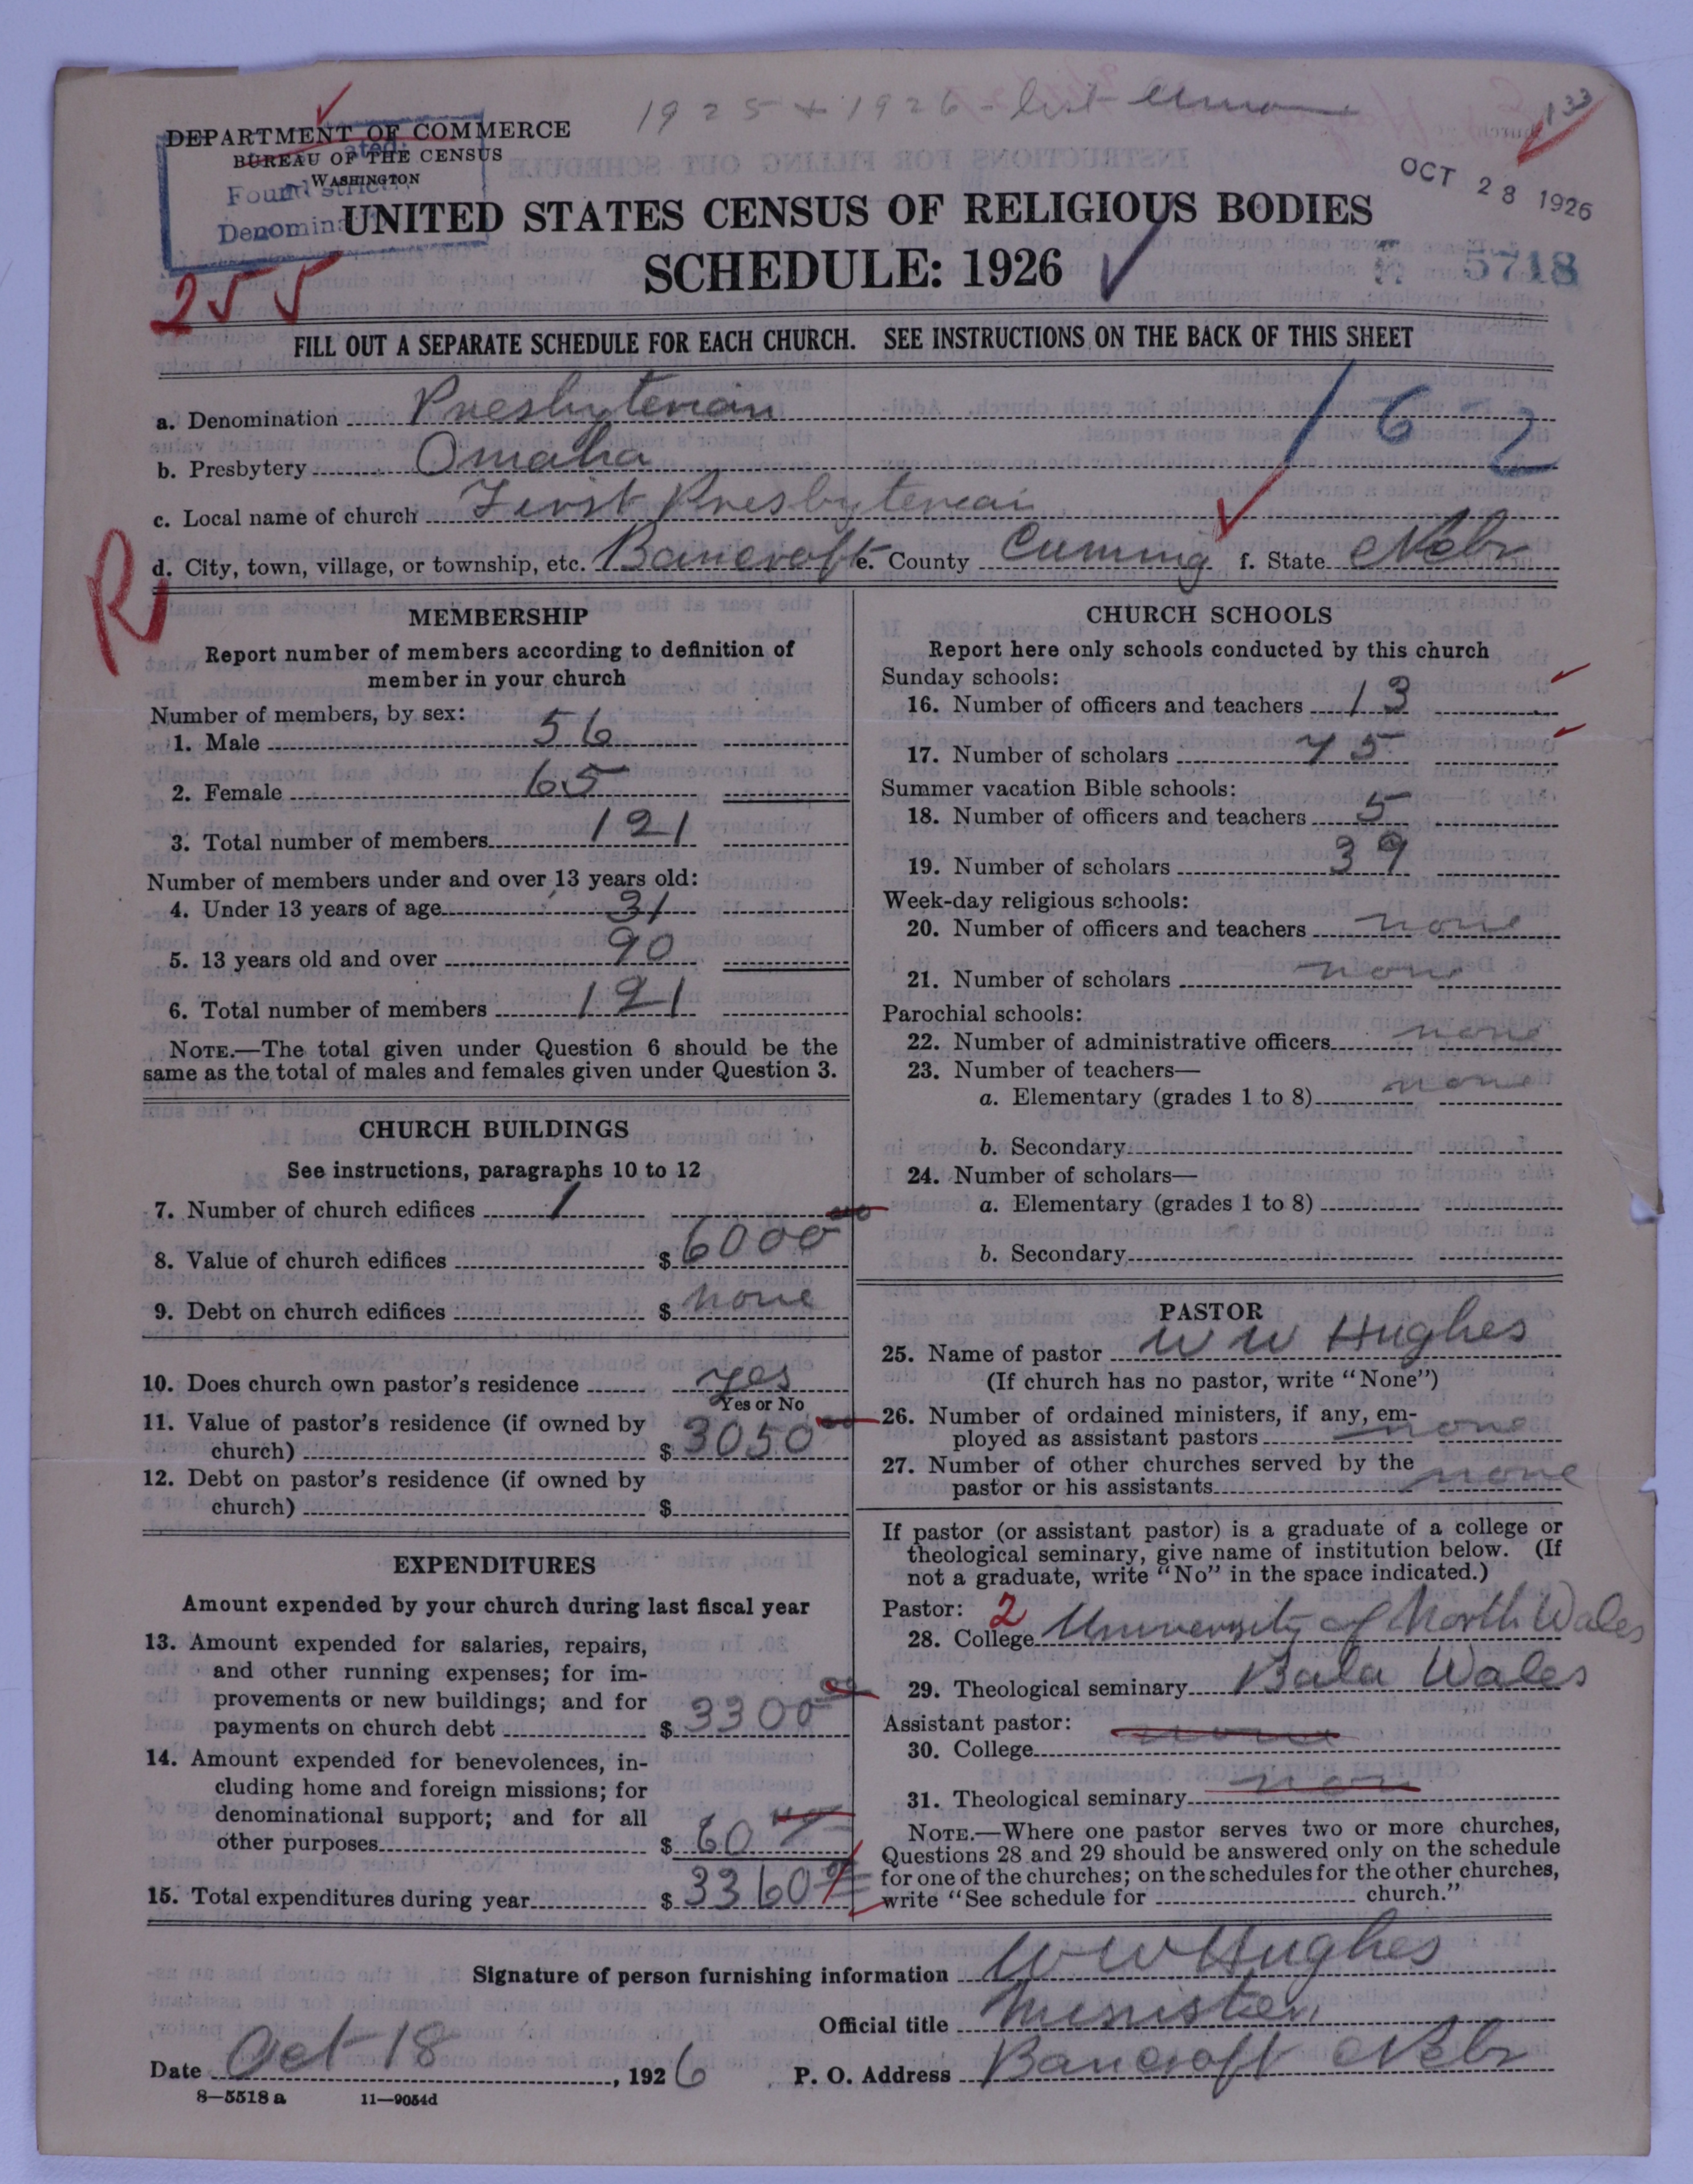 1925 + 1926 - list
133
DEPARTMENT OF COMMERCE
BUREAU OF THE CENSUS
WASHINGTON
OCT 28 1926
UNITED STATES CENSUS OF RELIGIOUS BODIES
SCHEDULE: 1926
5718
255
FILL OUT A SEPARATE SCHEDULE FOR EACH CHURCH. SEE INSTRUCTIONS ON THE BACK OF THIS SHEET
a. Denomination Presbyterian
162
b. Presbytery Omaha
c. Local name of church First Presbyterian
d. City, town, village, or township, etc. Bancroft e. County Cuming f. State Nebr
R
MEMBERSHIP
Report number of members according to definition of
member in your church
Number of members, by sex:
1. Male 56
2. Female 65
3. Total number of members 121
Number of members under and over 13 years old:
4. Under 13 years of age 31
5. 13 years old and over 90
6. Total number of members 121
NOTE.—The total given under Question 6 should be the
same as the total of males and females given under Question 3.
CHURCH BUILDINGS
See instructions, paragraphs 10 to 12
7. Number of church edifices 1
8. Value of church edifices $ 6000 00
9. Debt on church edifices $ none
10. Does church own pastor's residence yes
Yes or No
11. Value of pastor's residence (if owned by
church) $ 3050 00
12. Debt on pastor's residence (if owned by
church) $
EXPENDITURES
Amount expended by your church during last fiscal year
13. Amount expended for salaries, repairs,
and other running expenses; for im-
provements or new buildings; and for
payments on church debt $ 3300 00
14. Amount expended for benevolences, in-
cluding home and foreign missions; for
denominational support; and for all
other purposes $ 60
15. Total expenditures during year $ 3360
CHURCH SCHOOLS
Report here only schools conducted by this church
Sunday schools:
16. Number of officers and teachers 13
17. Number of scholars 75
Summer vacation Bible schools:
18. Number of officers and teachers 5
19. Number of scholars 39
Week-day religious schools:
20. Number of officers and teachers none
21. Number of scholars none
Parochial schools:
22. Number of administrative officers none
23. Number of teachers—
a. Elementary (grades 1 to 8) none
b. Secondary
24. Number of scholars—
a. Elementary (grades 1 to 8)
b. Secondary
PASTOR
25. Name of pastor W W Hughes
(If church has no pastor, write "None")
26. Number of ordained ministers, if any, em-
ployed as assistant pastors none
27. Number of other churches served by the
pastor or his assistants none
If pastor (or assistant pastor) is a graduate of a college or
theological seminary, give name of institution below. (If
not a graduate, write "No" in the space indicated.)
Pastor: 2
28. College University of North Wales
29. Theological seminary Bala Wales
Assistant pastor: none
30. College
31. Theological seminary non
NOTE.—Where one pastor serves two or more churches,
Questions 28 and 29 should be answered only on the schedule
for one of the churches; on the schedules for the other churches,
write "See schedule for church."
Signature of person furnishing information W W Hughes
Official title Minister
Date Oct 18, 1926 P. O. Address Bancroft Nebr
8—5518 a 11—9054d